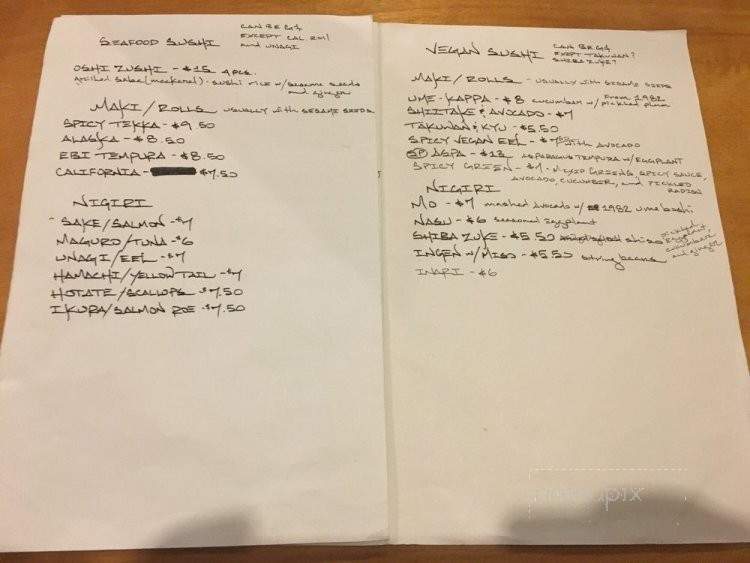 SEAFOOD SUSHI
CAN BE GF
EXCEPT CAL ROLL
and UNAGI
OSHI ZUSHI - $15 4 pcs.
grilled saba (mackerel) - sushi rice w/ sesame seeds
and ginger
MAKI/ROLLS USUALLY with SESAME SEEDS
SPICY TEKKA - $9.50
ALASKA - $8.50
EBI TEMPURA - $8.50
CALIFORNIA - $7.50
NIGIRI
SAKE/SALMON - $7
MAGURO/TUNA - $6
UNAGI/EEL - $7
HAMACHI/YELLOWTAIL - $7
HOTATE/SCALLOPS $7.50
IKURA/SALMON ROE $7.50
VEGAN SUSHI
CAN BE GF
EXCEPT TAKUWAN?
SHIBA ZUKE?
MAKI/ROLLS - USUALLY with SESAME SEEDS
UME-KAPPA - $8 cucumber w/ pickled plum From 1982
SHIITAKE & AVOCADO - $7
TAKUWAN & KYU - $5.50
SPICY VEGAN EEL - $7 with AVOCADO
ASPA - $13 ASPARAGUS TEMPURA w/ EGGPLANT
SPICY GREEN - $7 - MIXED GREENS, SPICY SAUCE,
AVOCADO, CUCUMBER, and PICKLED
RADISH
NIGIRI
MO - $7 mashed Avocado w/ 1982 umeboshi
NASU - $6 seasoned Eggplant
SHIBA ZUKE - $5.50 shiso
pickled
Eggplant,
cucumber
and ginger
INGEN w/ MISO - $5.50 string beans
INARI - $6